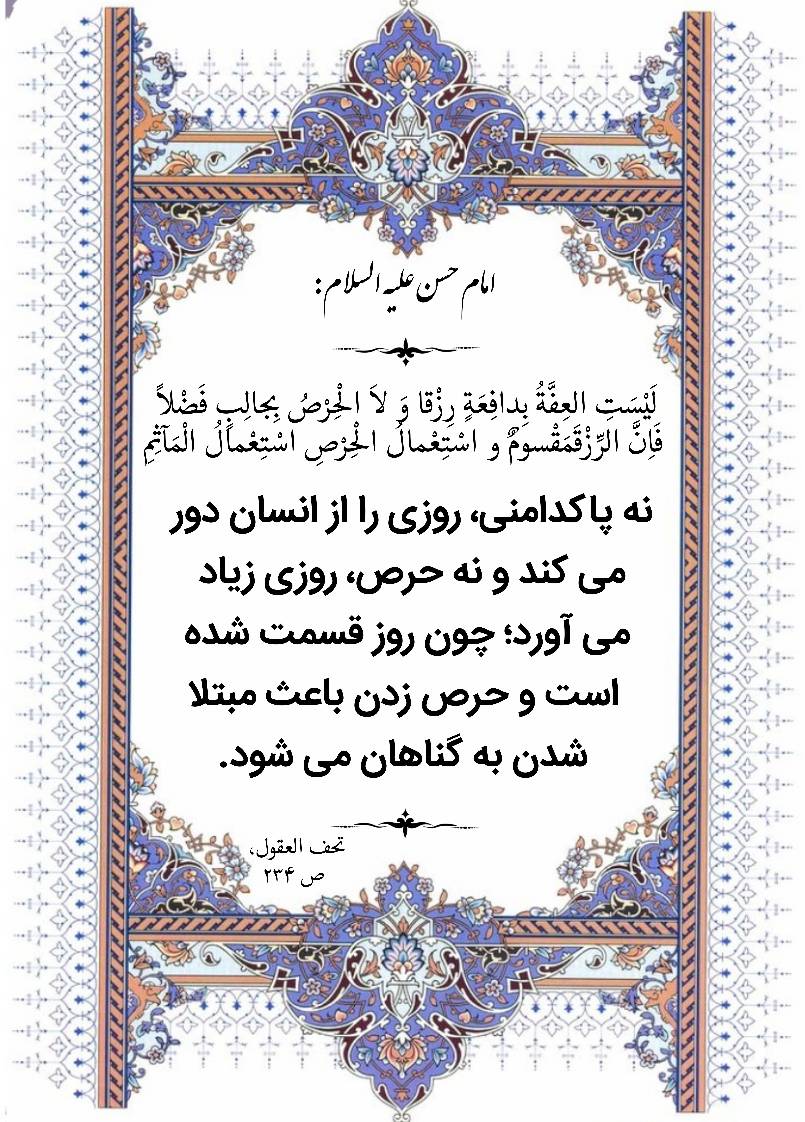 امام حسن علیه السلام:
لَیْسَتِ العِفَّةُ بِدافِعَةٍ رِزْقا وَ لاَ الْحِرْصُ بِجالِبٍ فَضْلاً
فَاِنَّ الرِّزْقَمَقْسومٌ و اسْتِعْمالُ الْحِرْصِ اسْتِعْمالُ الْمَآثِمِ
نه پاکدامنی، روزی را از انسان دور
می کند و نه حرص، روزی زیاد
می آورد؛ چون روز قسمت شده
است و حرص زدن باعث مبتلا
شدن به گناهان می شود.
تحف العقول،
ص ۲۳۴